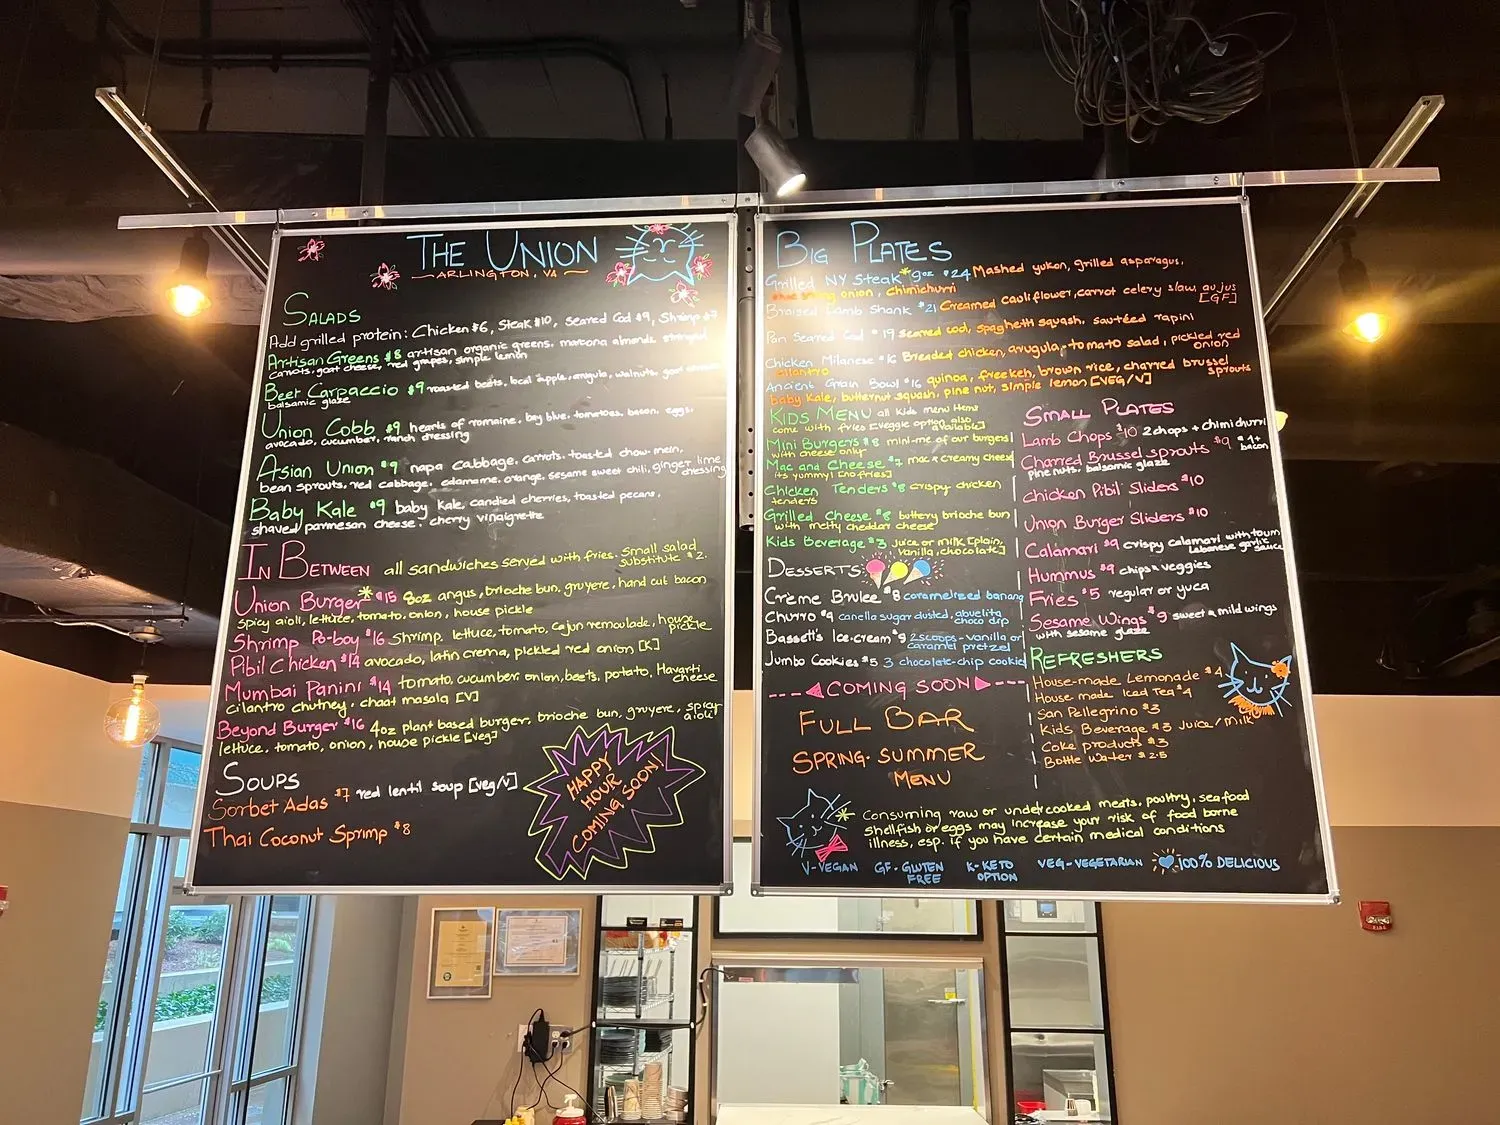 THE UNION
ARLINGTON, VA
SALADS
Add grilled protein: Chicken $6, Steak $10, seared Cod $9, Shrimp
Artisan Greens $8 artisan organic greens, marcona almonds,
carrots, goat cheese, red grapes, simple lemon
Beet Carpaccio $9 roasted beets, local apple, arugula, walnuts, goat
balsamic glaze
Union Cobb $9 hearts of romaine, bay blue, tomatoes, bacon, eggs,
avocado, cucumber, ranch dressing
Asian Union $9 napa cabbage, carrots, toasted chow-mein,
bean sprouts, red cabbage, edamame, orange, sesame sweet chili, ginger lime
dressing
Baby Kale $9 baby kale, candied cherries, toasted pecans,
shaved parmesan cheese, cherry vinaigrette
IN BETWEEN all sandwiches served with fries. Small salad
substitute $2.
Union Burger* $15 8oz angus, brioche bun, gruyere, hand cut bacon
spicy aioli, lettuce, tomato, onion, house pickle
Shrimp Po-boy $16 Shrimp, lettuce, tomato, cajun remoulade, house
pickle
Pibil Chicken $14 avocado, latin crema, pickled red onion [K]
Mumbai Panini $14 tomato, cucumber, onion, beets, potato, Havarti
cheese
cilantro chutney, chaat masala [V]
Beyond Burger $16 4oz plant based burger, brioche bun, gruyere, spicy
aioli
lettuce, tomato, onion, house pickle [veg]
SOUPS
Sorbet Adas $7 red lentil soup [veg/v]
Thai Coconut Sprimp $8
HAPPY
HOUR
COMING SOON!
BIG PLATES
Grilled NY Steak* 9oz $24 Mashed yukon, grilled asparagus,
onion, chimichurri
Braised Lamb Shank $21 Creamed cauliflower, carrot celery slaw, au jus
[GF]
Pan Seared Cod $19 seared cod, spaghetti squash, sautéed rapini
Chicken Milanese $16 Breaded chicken, arugula, tomato salad, pickled red
onion
cilantro
Ancient Grain Bowl $16 quinoa, freekeh, brown rice, charred brussel
sprouts
baby kale, butternut squash, pine nut, simple lemon [VEG/V]
KIDS MENU all kids menu items
come with fries [veggie option also
available]
Mini Burgers $8 mini-me of our burgers
with cheese only
Mac and Cheese $7 mac & creamy cheese
its yummy! [no fries]
Chicken Tenders $8 crispy chicken
tenders
Grilled Cheese $8 buttery brioche bun
with melty cheddar cheese
Kids Beverage $3 juice or milk [plain,
vanilla, chocolate]
DESSERTS
Crème Brulee $8 caramelized banana
Churro $9 canella sugar dusted, abuelita
choco dip
Bassett's Ice-cream $9 2 scoops - vanilla or
caramel pretzel
Jumbo Cookies $5 3 chocolate-chip cookies
COMING SOON
FULL BAR
SPRING-SUMMER
MENU
SMALL PLATES
Lamb Chops $10 2 chops + chimichurri
Charred Brussel sprouts $9 $1+
bacon
pine nuts, balsamic glaze
Chicken Pibil Sliders $10
Union Burger Sliders $10
Calamari $9 crispy calamari with toum
Lebanese garlic
sauce
Hummus $9 chips & veggies
Fries $5 regular or yuca
Sesame Wings $9 sweet & mild wings
with sesame glaze
REFRESHERS
House-made Lemonade $4
House made Iced Tea $4
San Pellegrino $3
Kids Beverage $3 Juice/Milk
Coke products $3
Bottle Water $2.5
* Consuming raw or undercooked meats, poultry, seafood
shellfish or eggs may increase your risk of food borne
illness, esp. if you have certain medical conditions
V-VEGAN GF-GLUTEN FREE K-KETO OPTION VEG-VEGETARIAN 100% DELICIOUS
FIRE